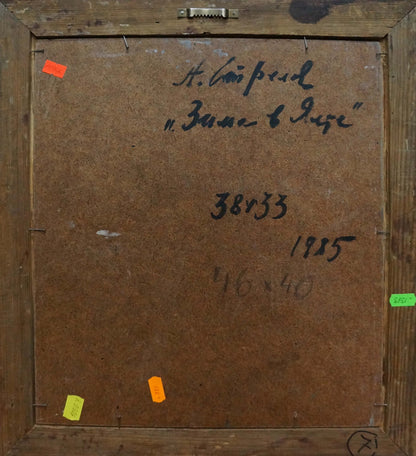 А. Стрелов
„Зима в Ялте"
38х33
1985
46 х 40